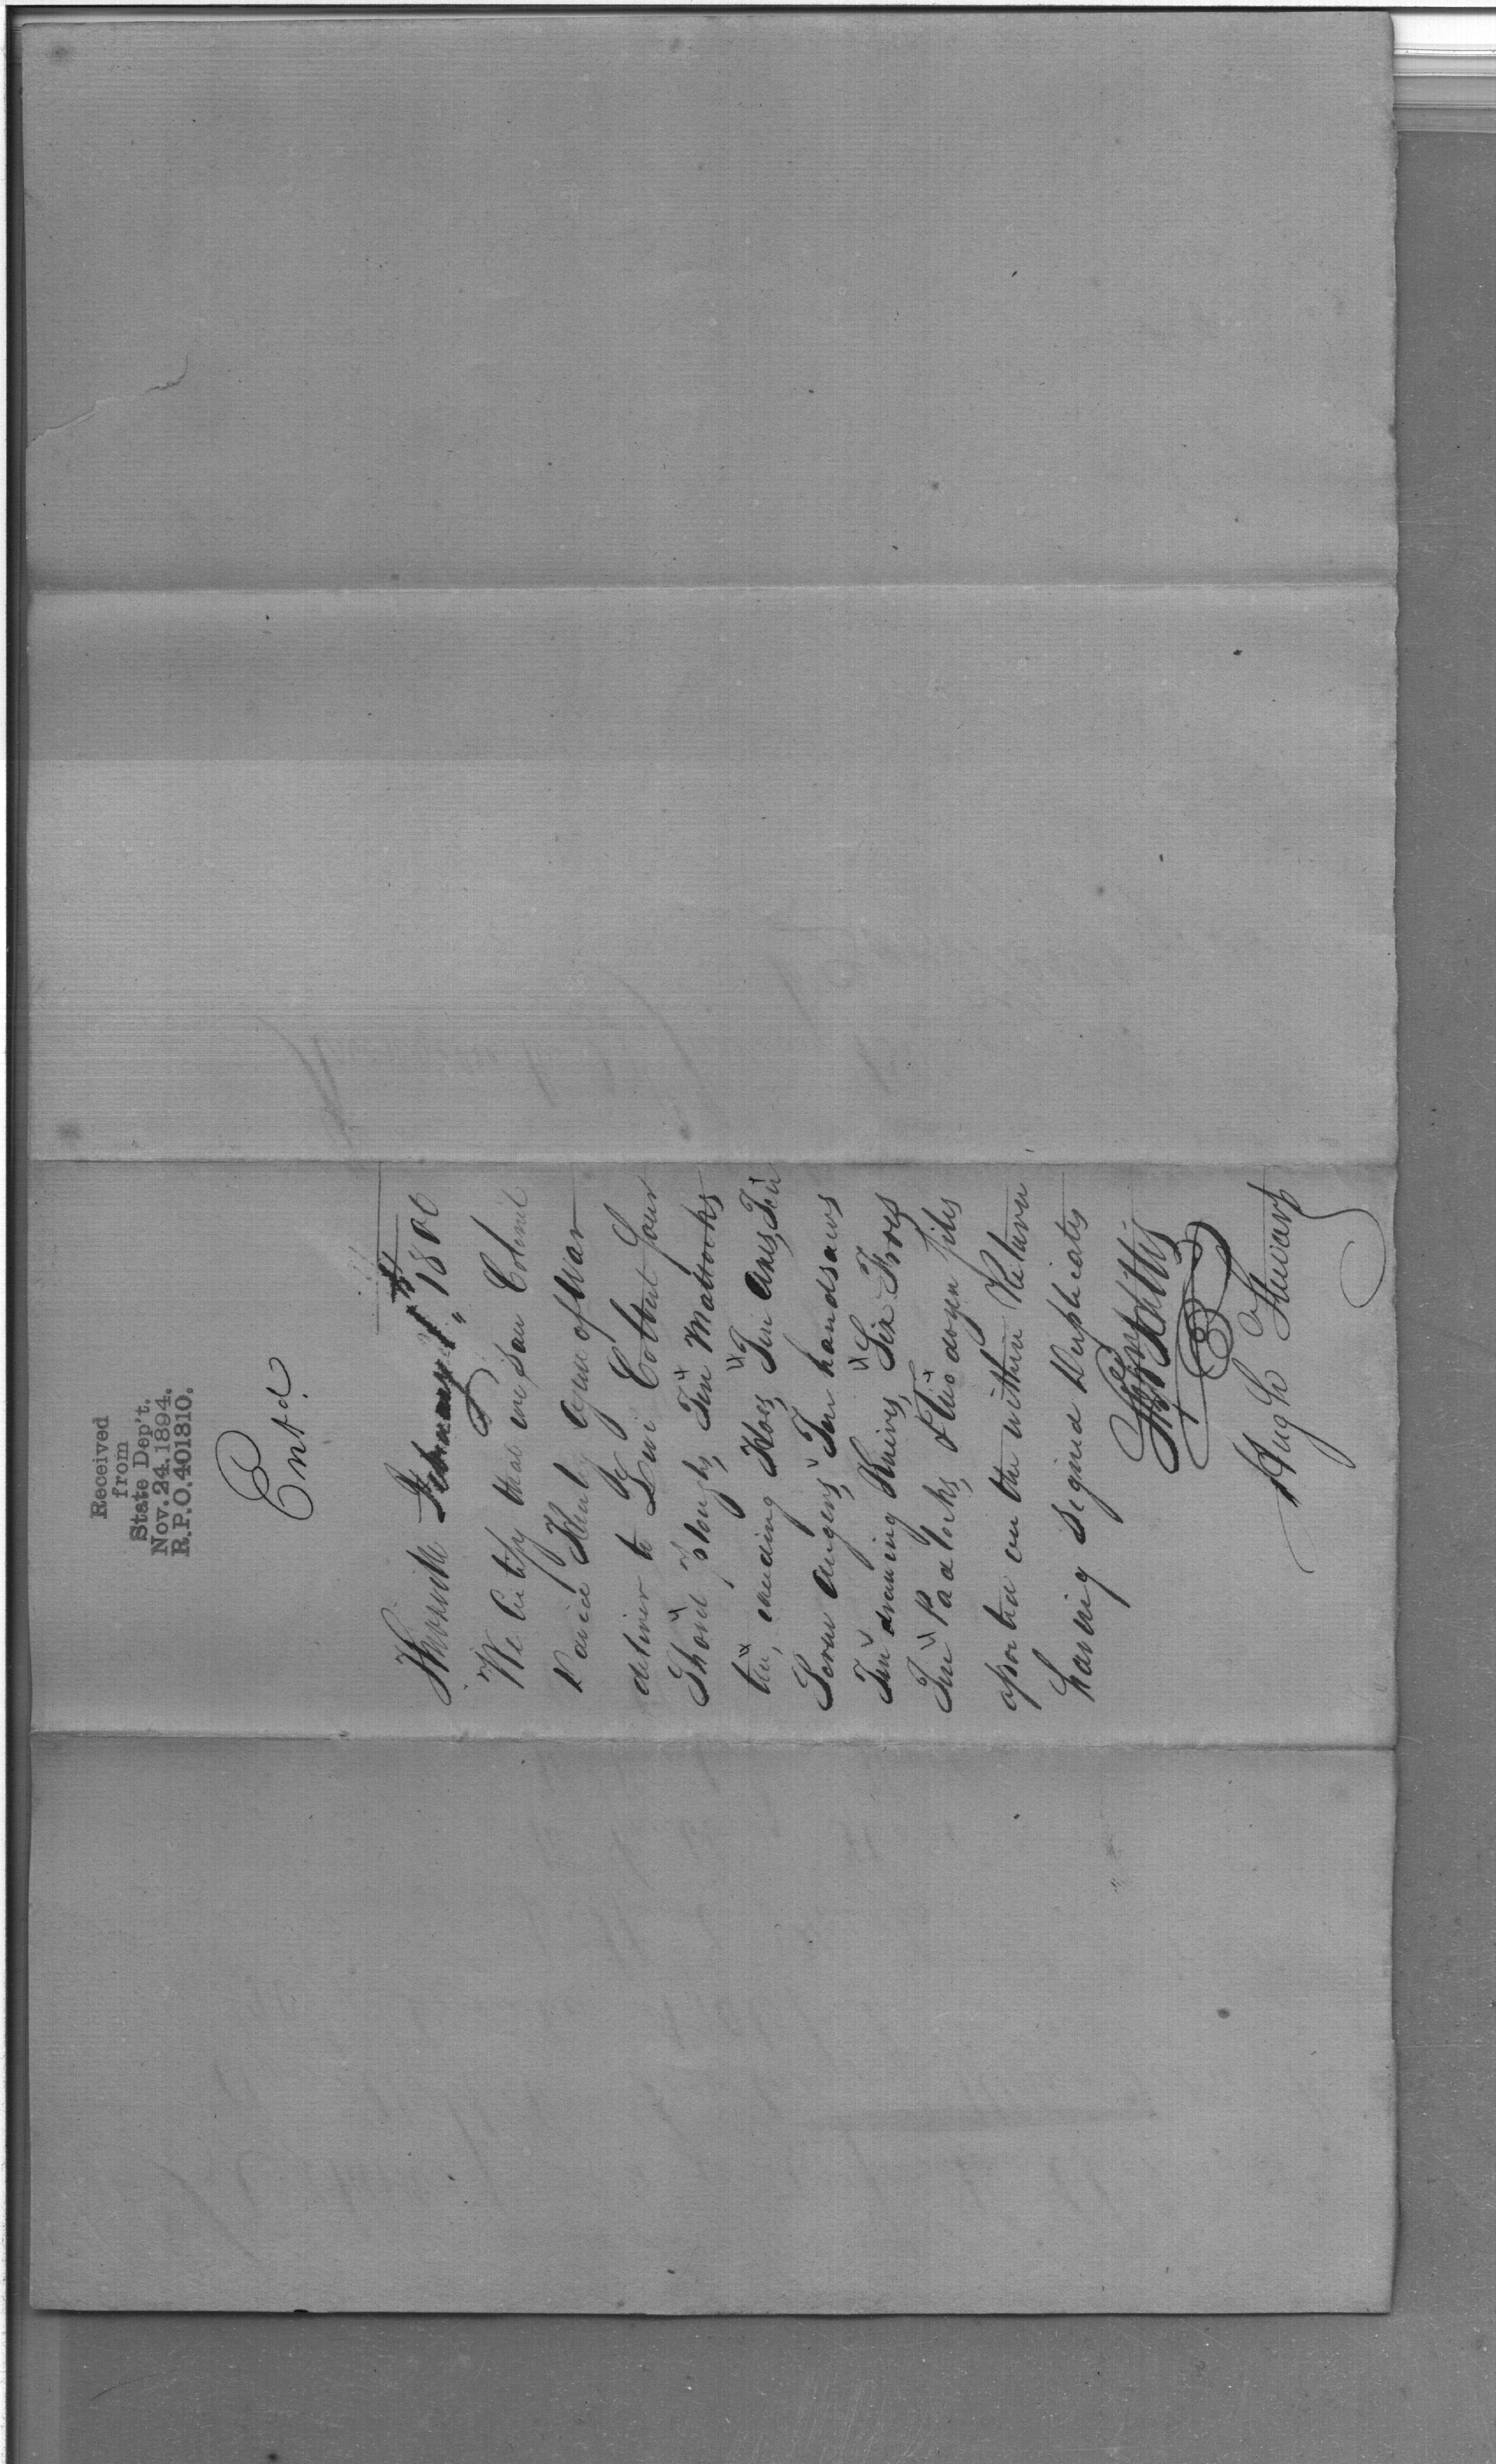 Received
from
State Dep't.
Nov. 24. 1894.
R.P.O. 401310.
Entd.
Knoxville February 1800
We Certify that we saw Colonel
David Henly Agent of War
deliver to Levi Colbert four
Shovel ploughs, Ten Mattocks
ten, weeding Hoes, Ten Axes, Ten
Screw Augers, Ten handsaws
Ten drawing Knives, Six Froes
Ten Padlocks, & two dozen files
as on the within Return
having signed Duplicates
Hugh Stewart